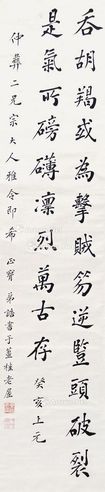 吞胡羯或為擊賊笏逆豎頭破裂
是氣所磅礴凜烈萬古存 癸亥上元
仲彝二兄宗大人雅令即希 正 弟書于老屋